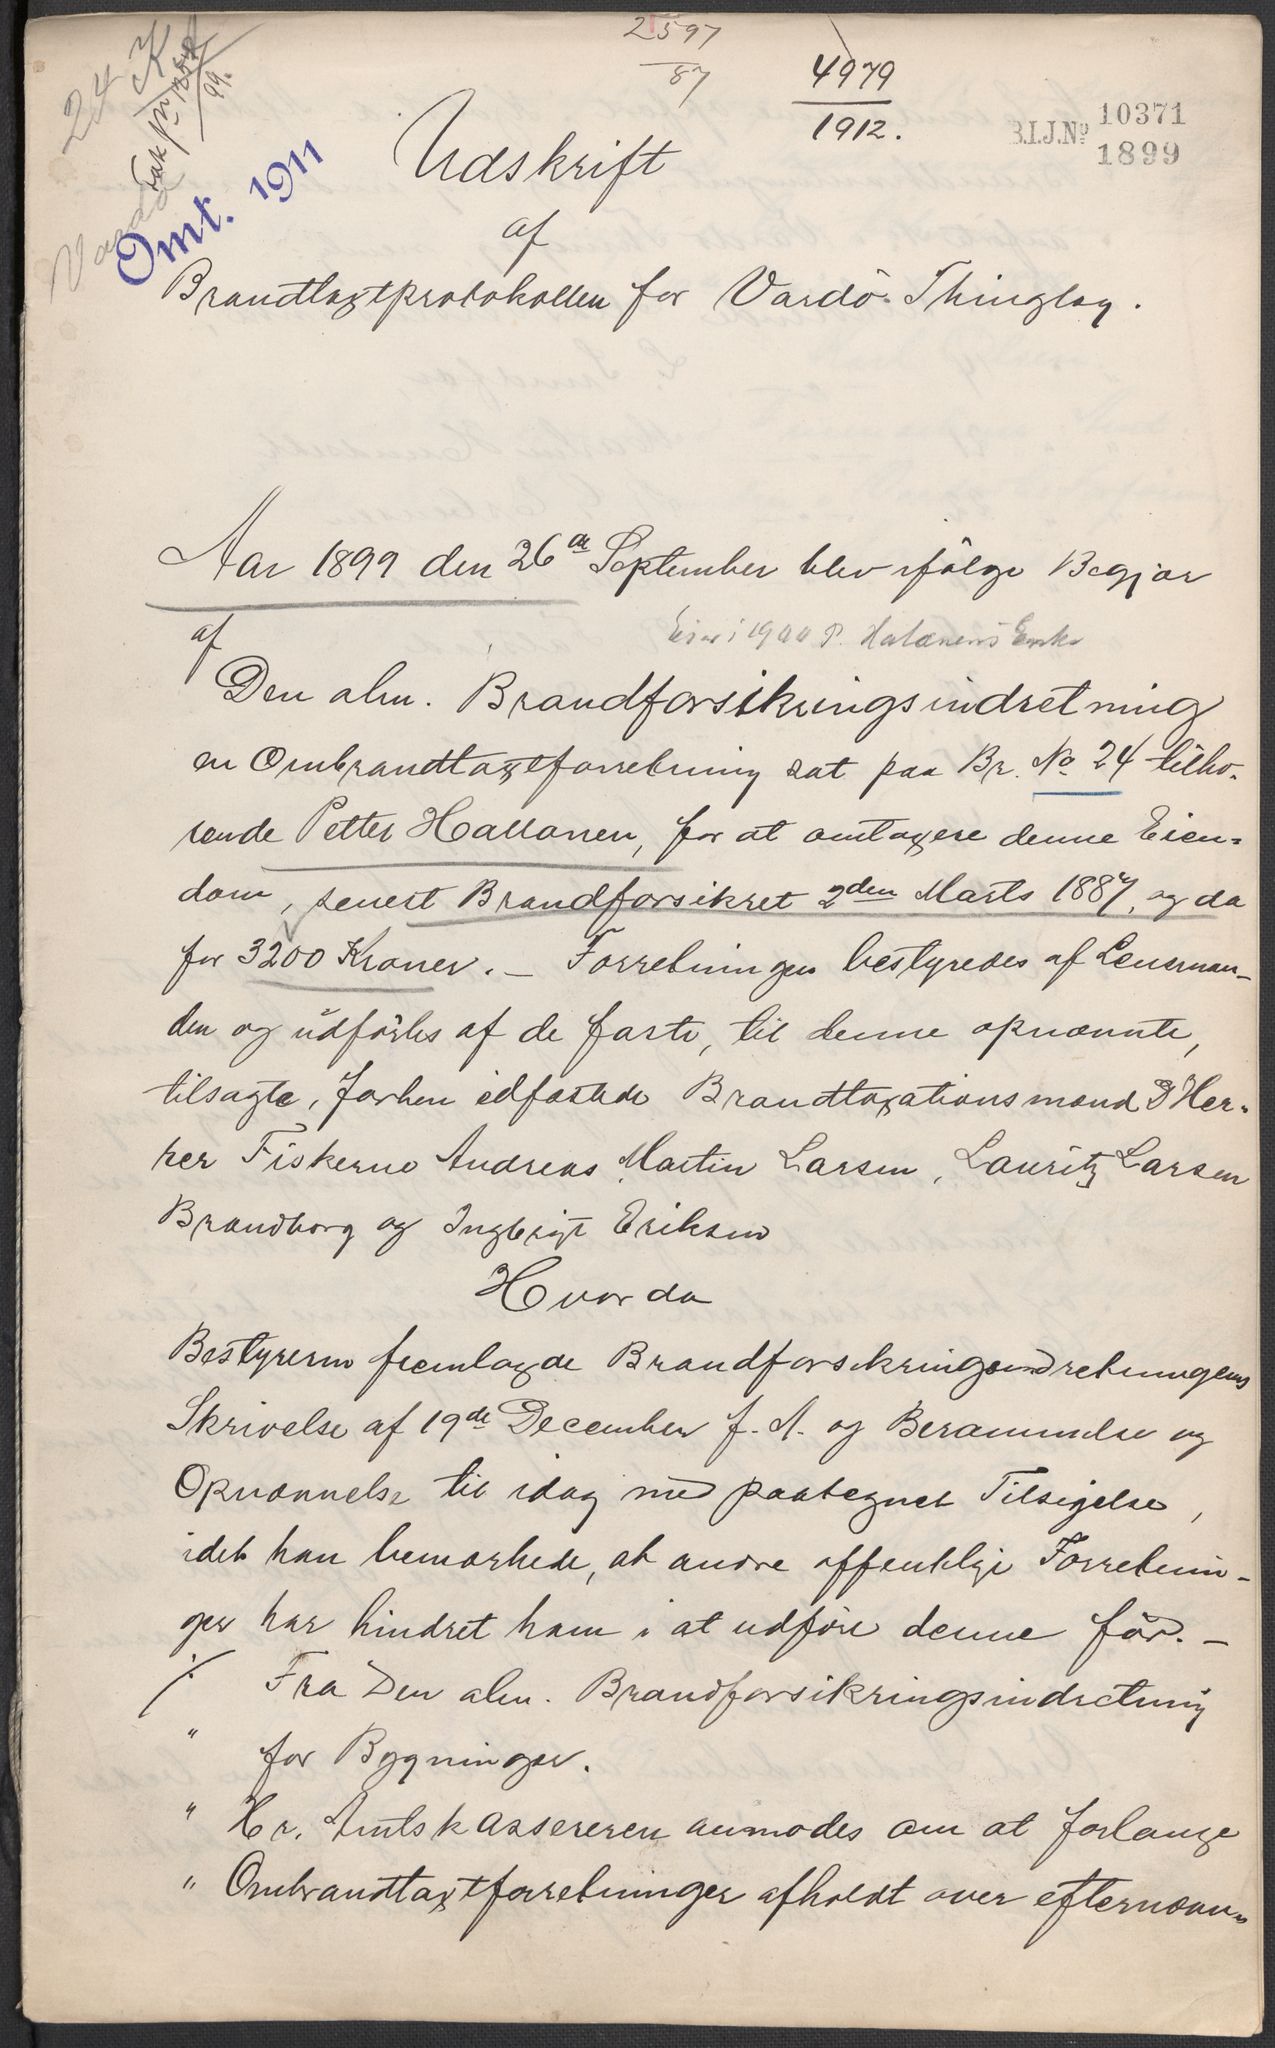 2597
87
4979
1912.
B.I.J.No 10371
1899
24
Omt. 1911
Udskrift
af
Brandtaxtprotokollen for Vardö Thinglag.
Aar 1899 den 26de September blev ifölge Begjær
af
Eier i 1900 P. Halanens Enke
Den alm. Brandforsikringsindretning
en Ombrandtaxtforretning sat paa Br. No 24 tilhö-
rende Petter Hallanen, for at omtaxere denne Eien-
dom, senest Brandforsikret 2den Marts 1887, og da
for 3200 Kroner. — Forretningen bestyredes af Lensman-
den og udförtes af de faste, til denne opnævnte,
tilsagte, forhen edfæstede Brandtaxationsmænd D'Her-
rer Fiskerne Andreas Martin Larsen, Lauritz Larsen
Brandborg og Ingbrigt Eriksen
Hvorda
Bestyreren fremlagde Brandforsikringsindretningens
Skrivelse af 19de December f. A. og Berammelse og
Opnævnelse til idag med paategnet Tilsigelse,
idet han bemærkede, at andre offentlige Forretnin-
ger har hindret ham i at udföre denne för. —
./. Fra Den alm. Brandforsikringsindretning
" for Bygninger.
" Hr. Amtskassereren anmodes om at forlange
" Ombrandtaxtforretninger afholdt over efternævn-